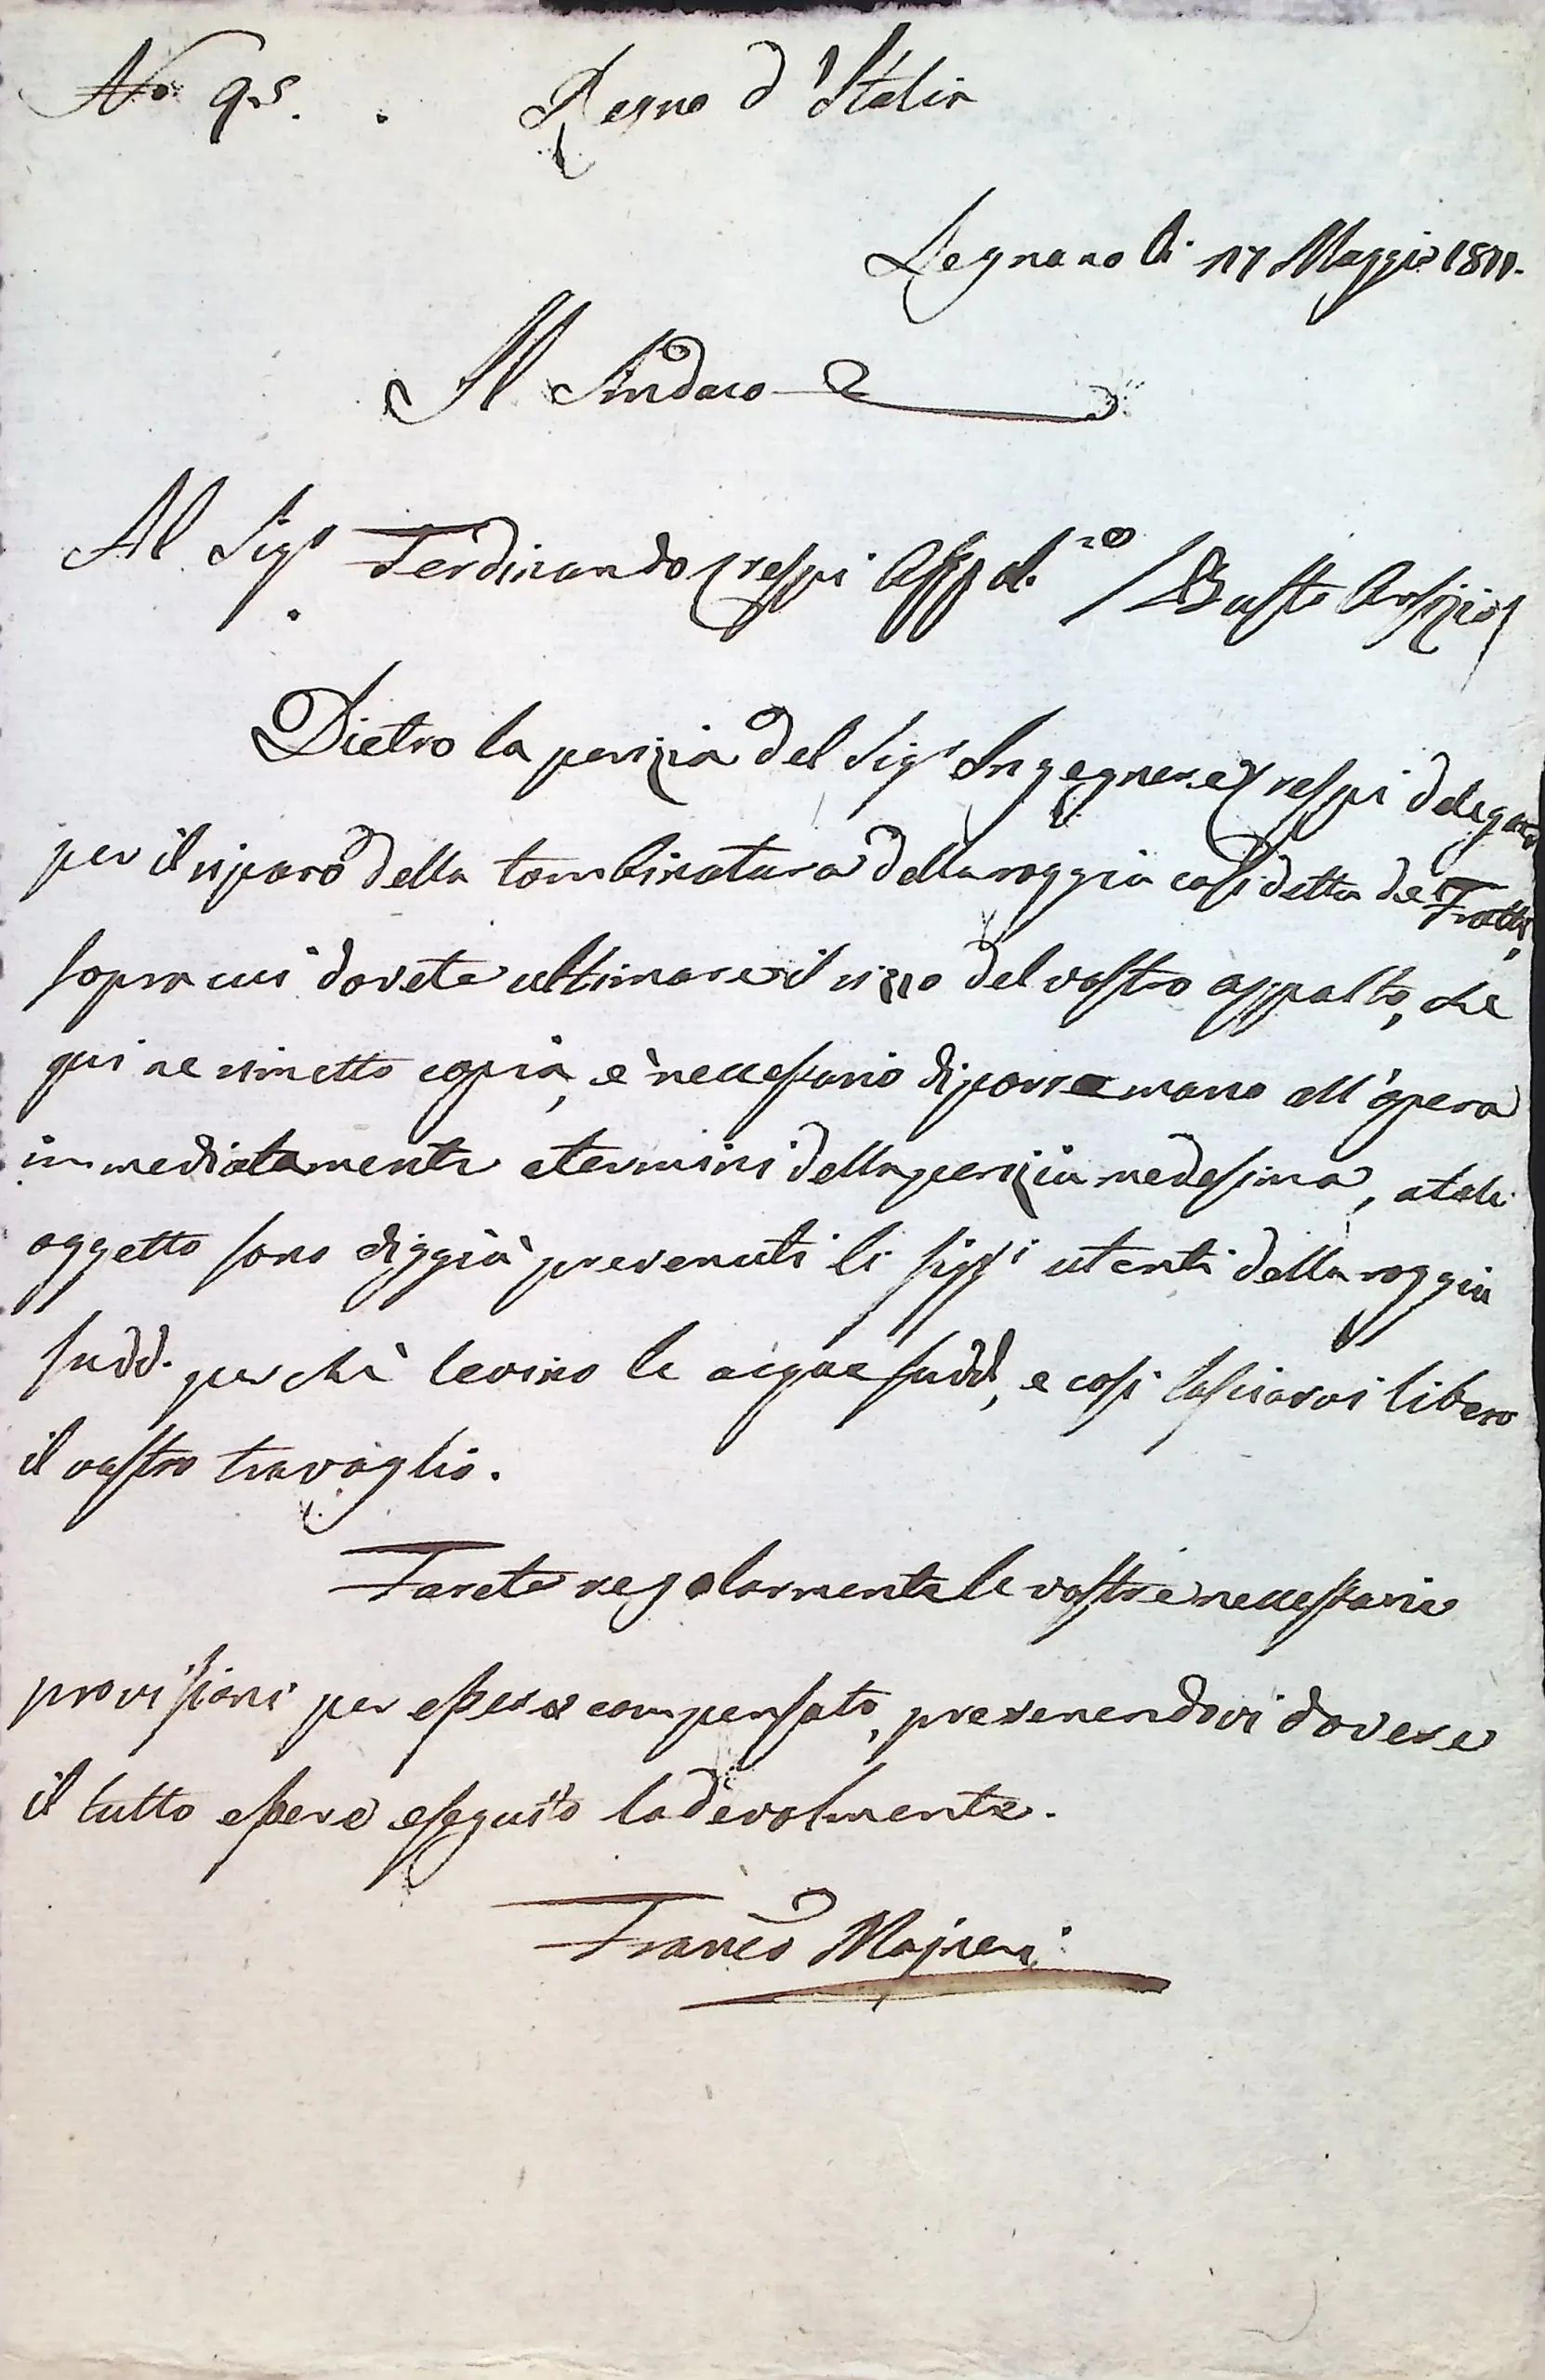 No 95. Regno d'Italia
Legnano li 17 Maggio 1811.
Il Sindaco
Al Sigr Ferdinando Crespi App.re /Busto Arsizio/
Dietro la perizia del Sigr Ingegnere Crespi delegato
per il riparo della tombinatura della roggia così detta de Fratti,
sopra cui dovete ultimare il rizzo del vostro appalto, che
qui ne rimetto copia, è necessario di porre mano all'opera
immediatamente a termini della perizia medesima, a tale
oggetto sono diggià prevenuti li sigg.i utenti della roggia
sudd. perchè levino le acque sudd, e così lasciarvi libero
il vostro travaglio.
Farete regolarmente le vostre necessarie
provisioni per essere compensato, prevenendovi dovere
il tutto essere eseguito lodevolmente.
Franc.o Majneri